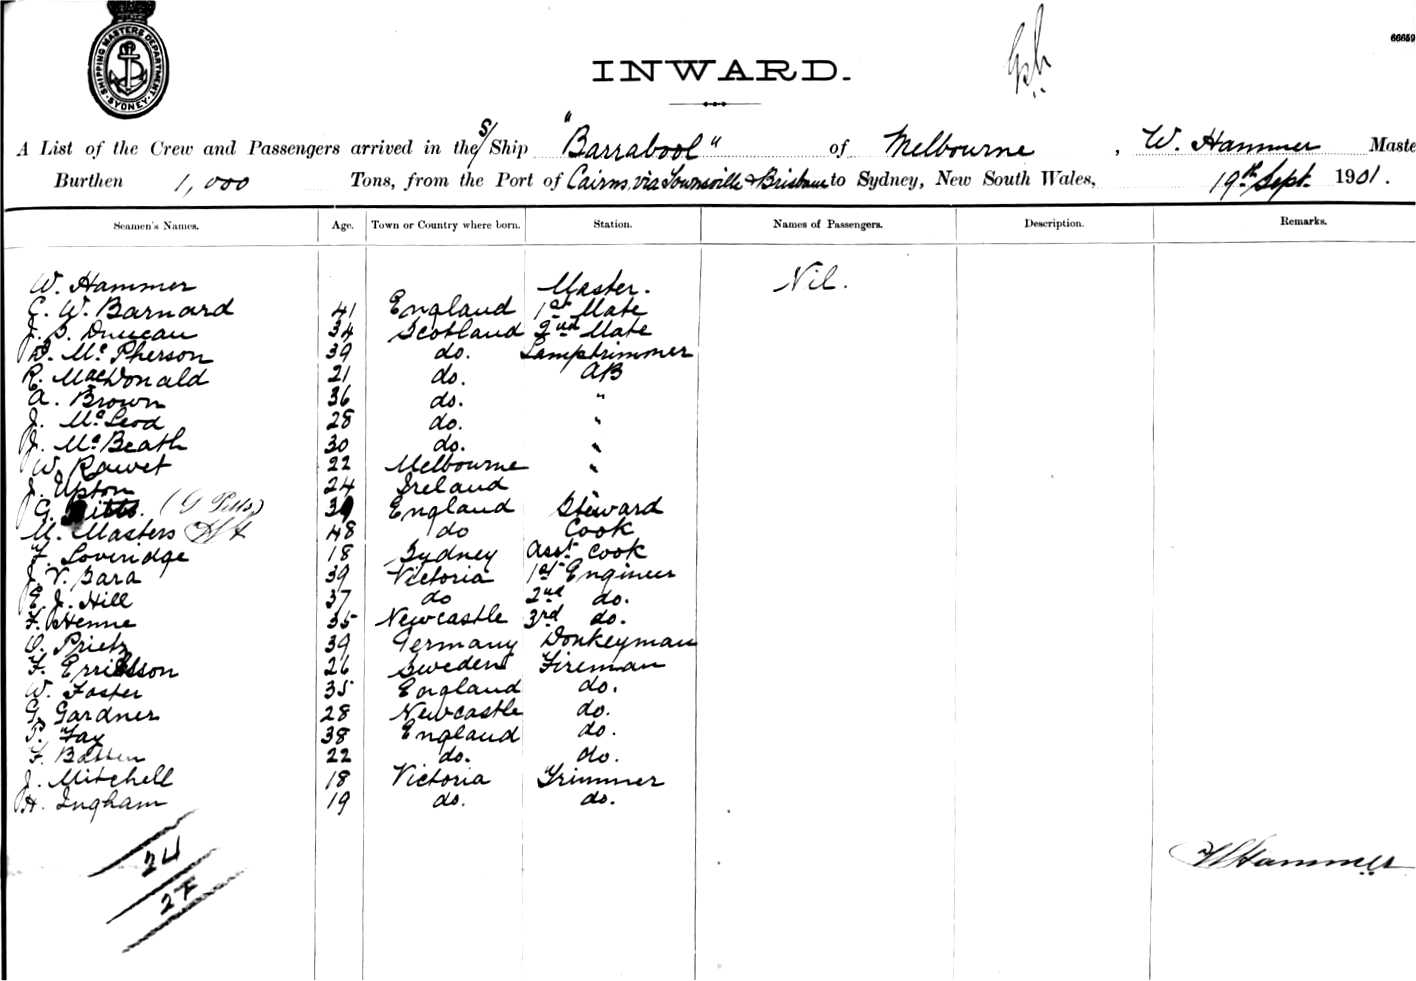 SHIPPING MASTERS DEPARTMENT
SYDNEY
66659
INWARD.
A List of the Crew and Passengers arrived in the S/Ship "Barrabool" of Melbourne, W. Hammer Maste
Burthen 1,000 Tons, from the Port of Cairns via Townsville & Brisbane to Sydney, New South Wales, 19th Sept. 1901.
Seamen's Names. Age. Town or Country where born. Station. Names of Passengers. Description. Remarks.
W. Hammer Master. Nil.
C. W. Barnard 41 England 1st Mate
J. S. Duncan 34 Scotland 2nd Mate
D. McPherson 39 do. Lamptrimmer
R. MacDonald 21 do. AB
A. Brown 36 do. "
J. McLeod 28 do. "
J. McBeath 30 do. "
W. Rawet 22 Melbourne "
J. Upton 24 Ireland "
G. Pitts. (G Pitts) 39 England Steward
M. Masters 48 do Cook
F. Loveridge 18 Sydney Asst. Cook
J. V. Bara 39 Victoria 1st Engineer
E. J. Hill 37 do 2nd do.
F. Henne 35 Newcastle 3rd do.
O. Prietz 39 Germany Donkeyman
F. Erricksson 26 Sweden Fireman
W. Foster 35 England do.
G. Gardner 28 Newcastle do.
P. Fay 38 England do.
F. Batten 22 do. do.
J. Mitchell 18 Victoria Trimmer
H. Ingham 19 do. do.
24
27
W Hammer